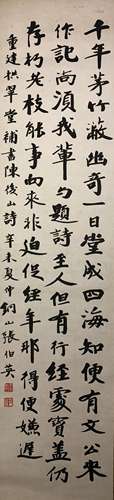 千年茅竹蔽幽奇一日堂成四海知便有文公來
作記尚須我輩与題詩主人但有行經處寶盖仍
存朽老枝能事向來非迫促經年那得便嫌遲
重建拱翠堂補書陳後山詩 辛未夏仲銅山張伯英